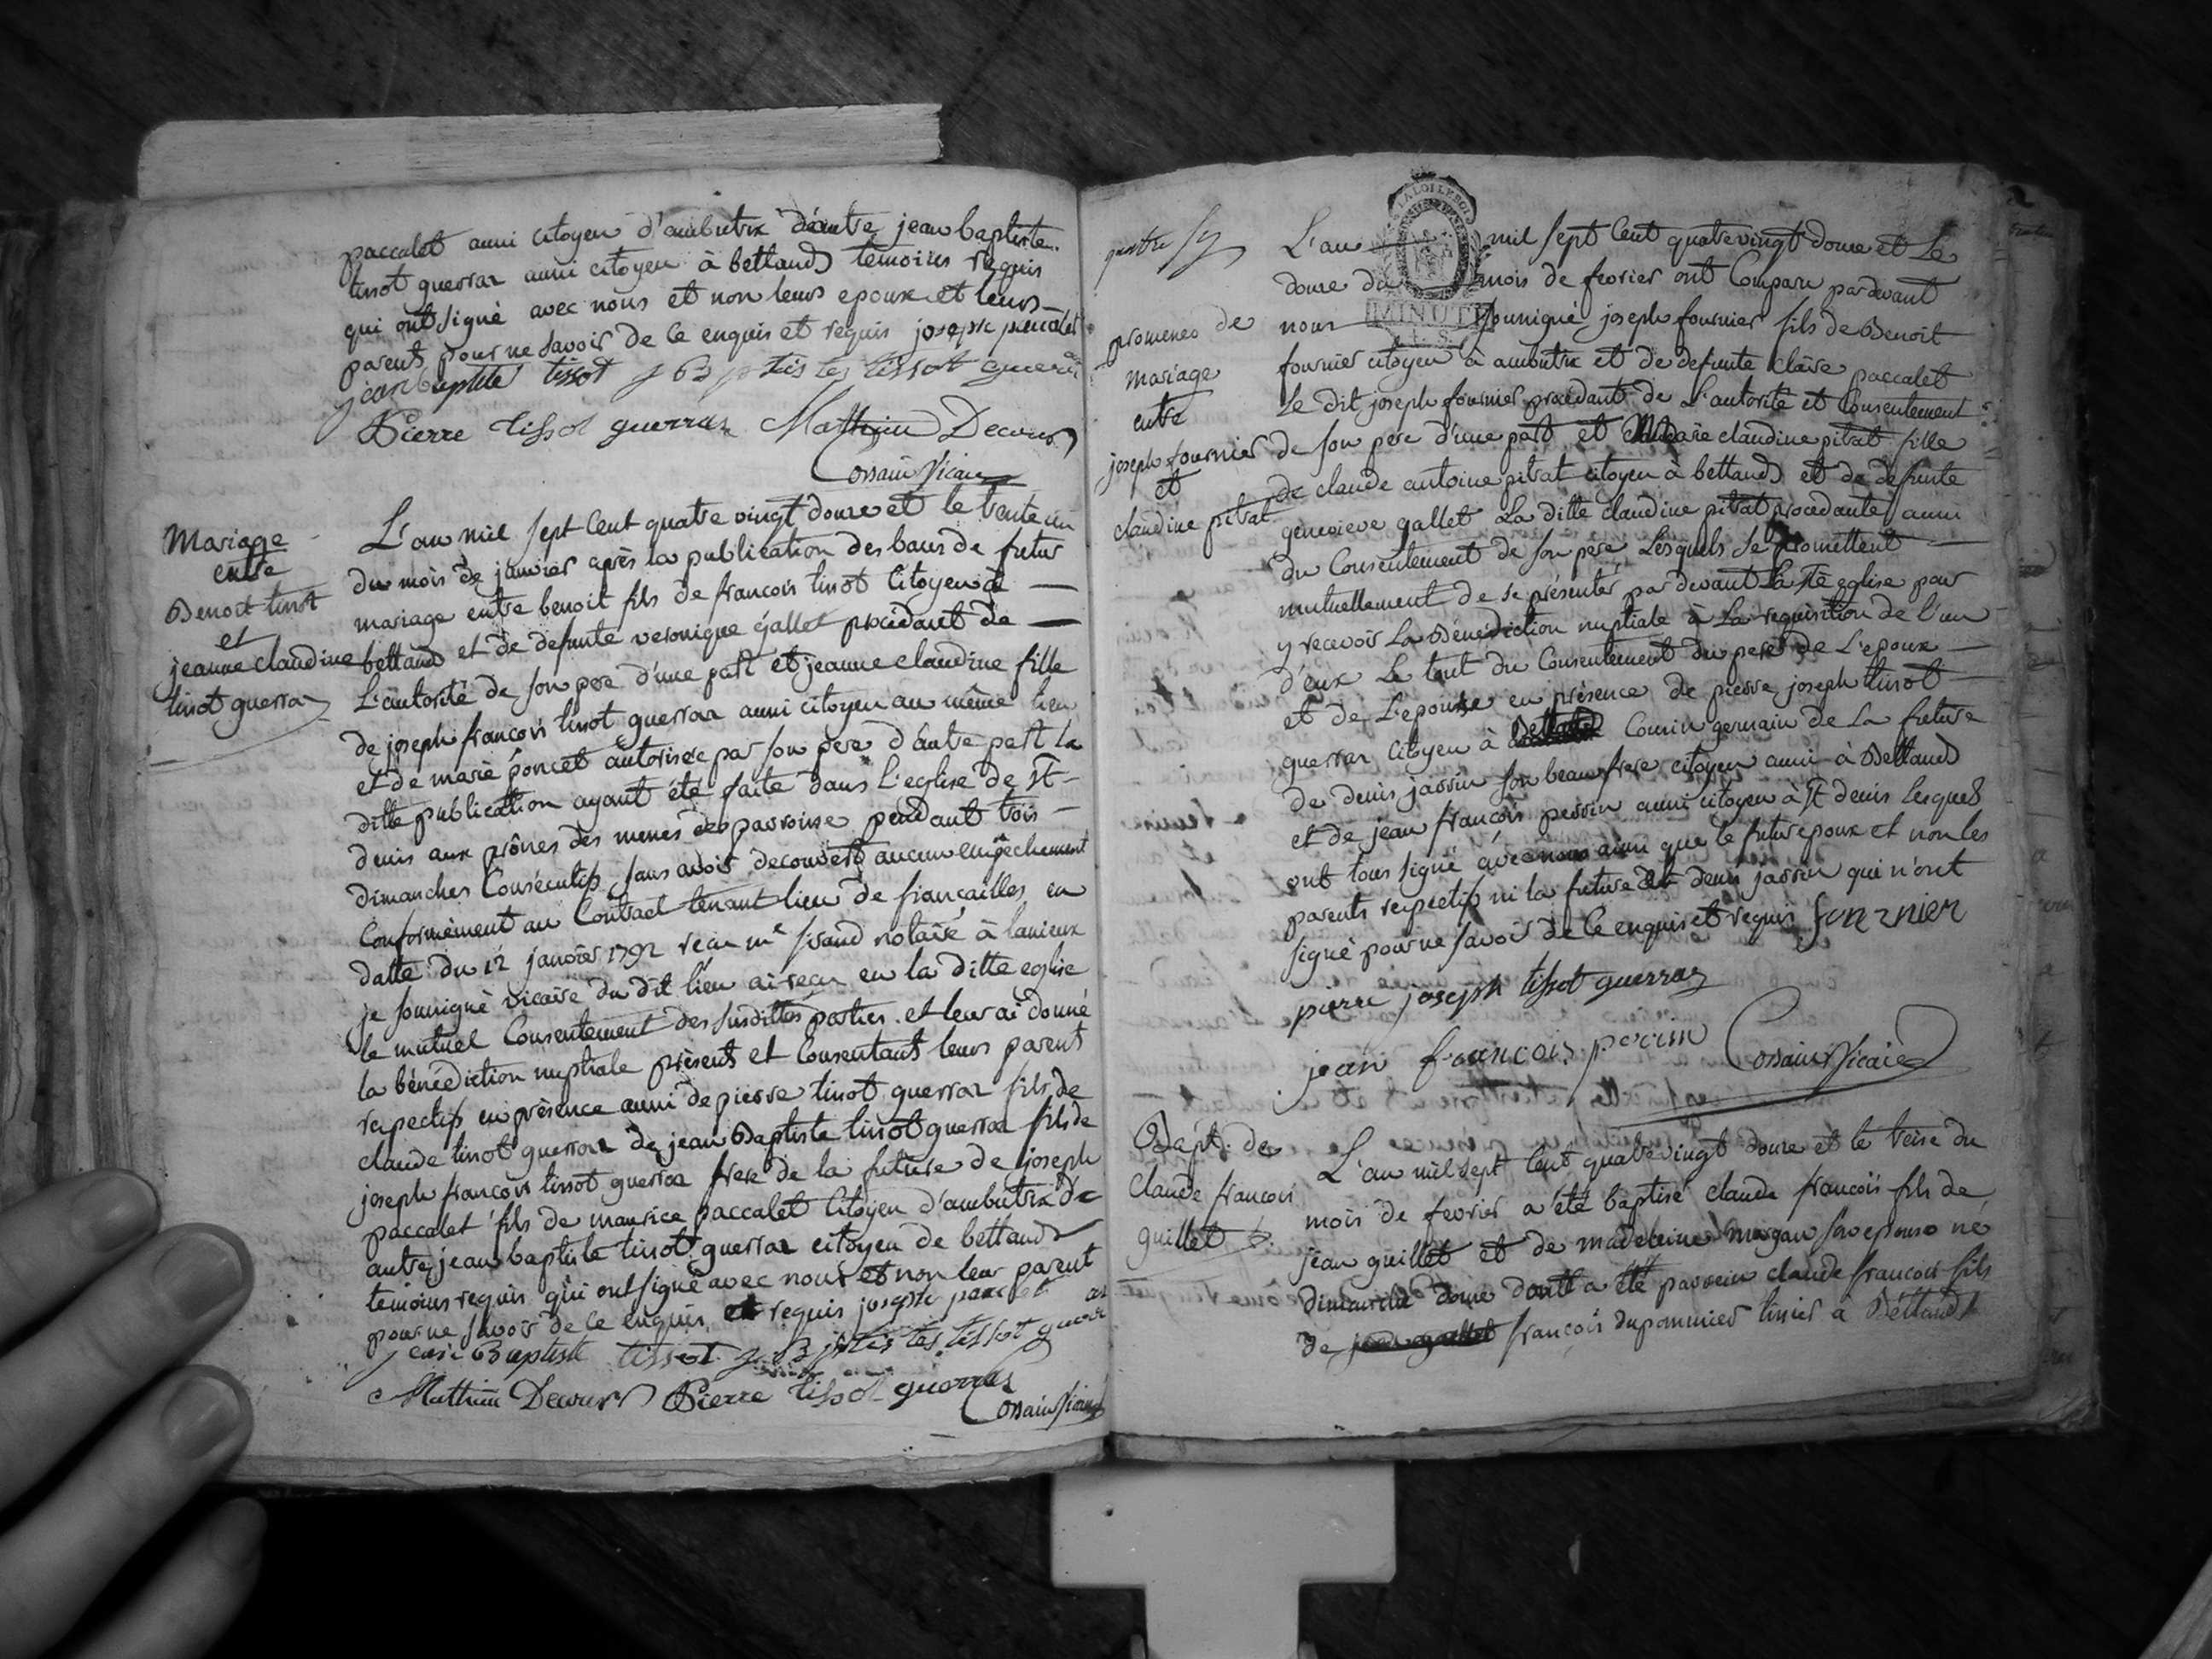 paccalet aussi citoyen d'ambutrix d'autre jean baptiste
tissot guerraz aussi citoyen à bettand temoins requis
qui ont signé avec nous et non leurs epoux et leurs
parents pour ne savoir de ce enquis et requis joseph paccalet
jean baptiste tissot j b tissot
Pierre tissot guerraz Mathieu Decours
Cossain Vicaire
Mariage
entre
Benoit tissot
et
jeanne claudine
tissot guerraz
L'an mil sept Cent quatre vingt douze et le trente un
du mois de janvier après la publication des bans de futur
mariage entre benoit fils de francois tissot Citoyen à
bettand et de defunte veronique gallet procédant de
L'autorité de son pere d'une part et jeanne claudine fille
de joseph francois tissot guerraz aussi citoyen au même lieu
et de marie poncet autorisée par son père d'autre part la
ditte publication ayant été faite dans L'eglise de st
denis aux prônes des messes de paroisse pendant trois
dimanches Consécutifs sans avoir decouvert aucun empêchement
Conformément au Contract tenant lieu de fiançailles en
datte du 12 janvier 1792 reçu me sirand notaire à lanieux
je soussigné vicaire du dit lieu ai reçu en la ditte eglise
le mutuel Consentement des susdittes parties et leur ai donné
la bénédiction nuptiale présents et Consentants leurs parent
respectifs en présence aussi de pierre tissot guerraz fils de
claude tissot guerraz de jean Baptiste tissot guerraz fils de
joseph francois tissot guerraz frere de la future de joseph
paccalet fils de maurice paccalet Citoyen d'ambutrix de
autre jean baptiste tissot guerraz citoyen de bettand
temoins requis qui ont signé avec nous et non leur parent
pour ne savoir de ce enquis et requis joseph paccalet
jean Baptiste tissot j B tissot
Mathieu Decours Pierre tissot guerraz
Cossain Vicaire
LA LOI LE ROI
MINUTE
promesses de
mariage
entre
joseph fournier
et
claudine pitrat
L'an mil sept Cent quatre vingt douze et Le
douze du mois de fevrier ont Comparu pardevant
nous soussigné joseph fournier fils de Benoit
fournier citoyen à ambutrix et de defunte claire paccalet
Le dit joseph fournier procédant de L'autorité et Consentement
de son pere d'une part et Marie claudine pitrat fille
de claude antoine pitrat citoyen à bettand et de defunte
genevieve gallet La ditte claudine pitrat procedante aussi
du Consentement de son pere Lesquels se promettent
mutuellement de se présenter par devant La ste eglise pour
y recevoir La Bénédiction nuptiale à La requisition de l'un
d'eux Le tout du Consentement du pere de L'epoux
et de L'epouse en présence de pierre joseph tissot
guerraz Citoyen à Bettand Cousin germain de La future
de denis jassin son beau frere citoyen aussi à Bettand
et de jean françois perrin aussi citoyen à St denis Lesquels
ont tous signé avec nous ainsi que le futur epoux et non les
parents respectifs ni la future et denis jassin qui n'ont
signé pour ne savoir de Ce enquis et requis fournier
pierre joseph tissot guerraz
jean francois perrin Cossain Vicaire
Bapt. de
Claude francois
guillet
L'an mil sept Cent quatre vingt douze et le treize du
mois de fevrier a été baptisé claude francois fils de
jean guillet et de madeleine son epouse né
dimanche douze dont a été parrein claude francois fils
de françois dupommier tissier à Bettand